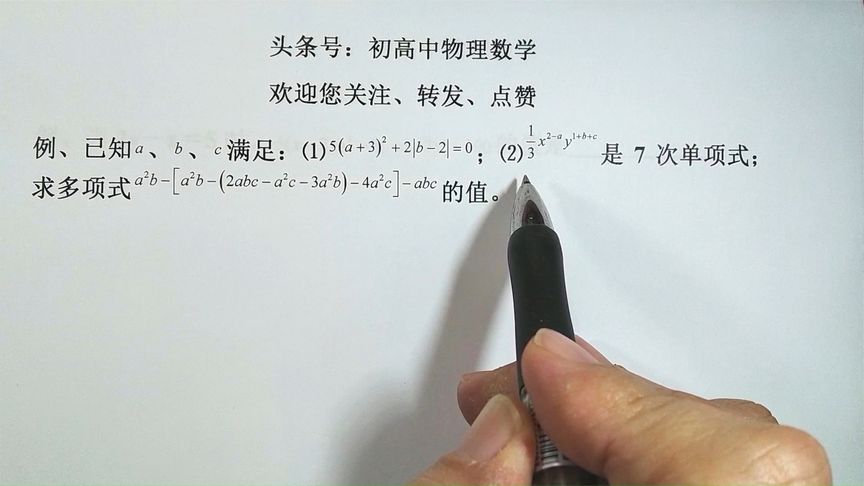 头条号：初高中物理数学
欢迎您关注、转发、点赞
例、已知 a 、 b 、 c 满足：(1) 5(a+3)²+2|b−2|=0 ；(2) 1/3 x^{2−a} y^{1+b+c} 是 7 次单项式；
求多项式 a²b−[a²b−(2abc−a²c−3a²b)−4a²c]−abc 的值。